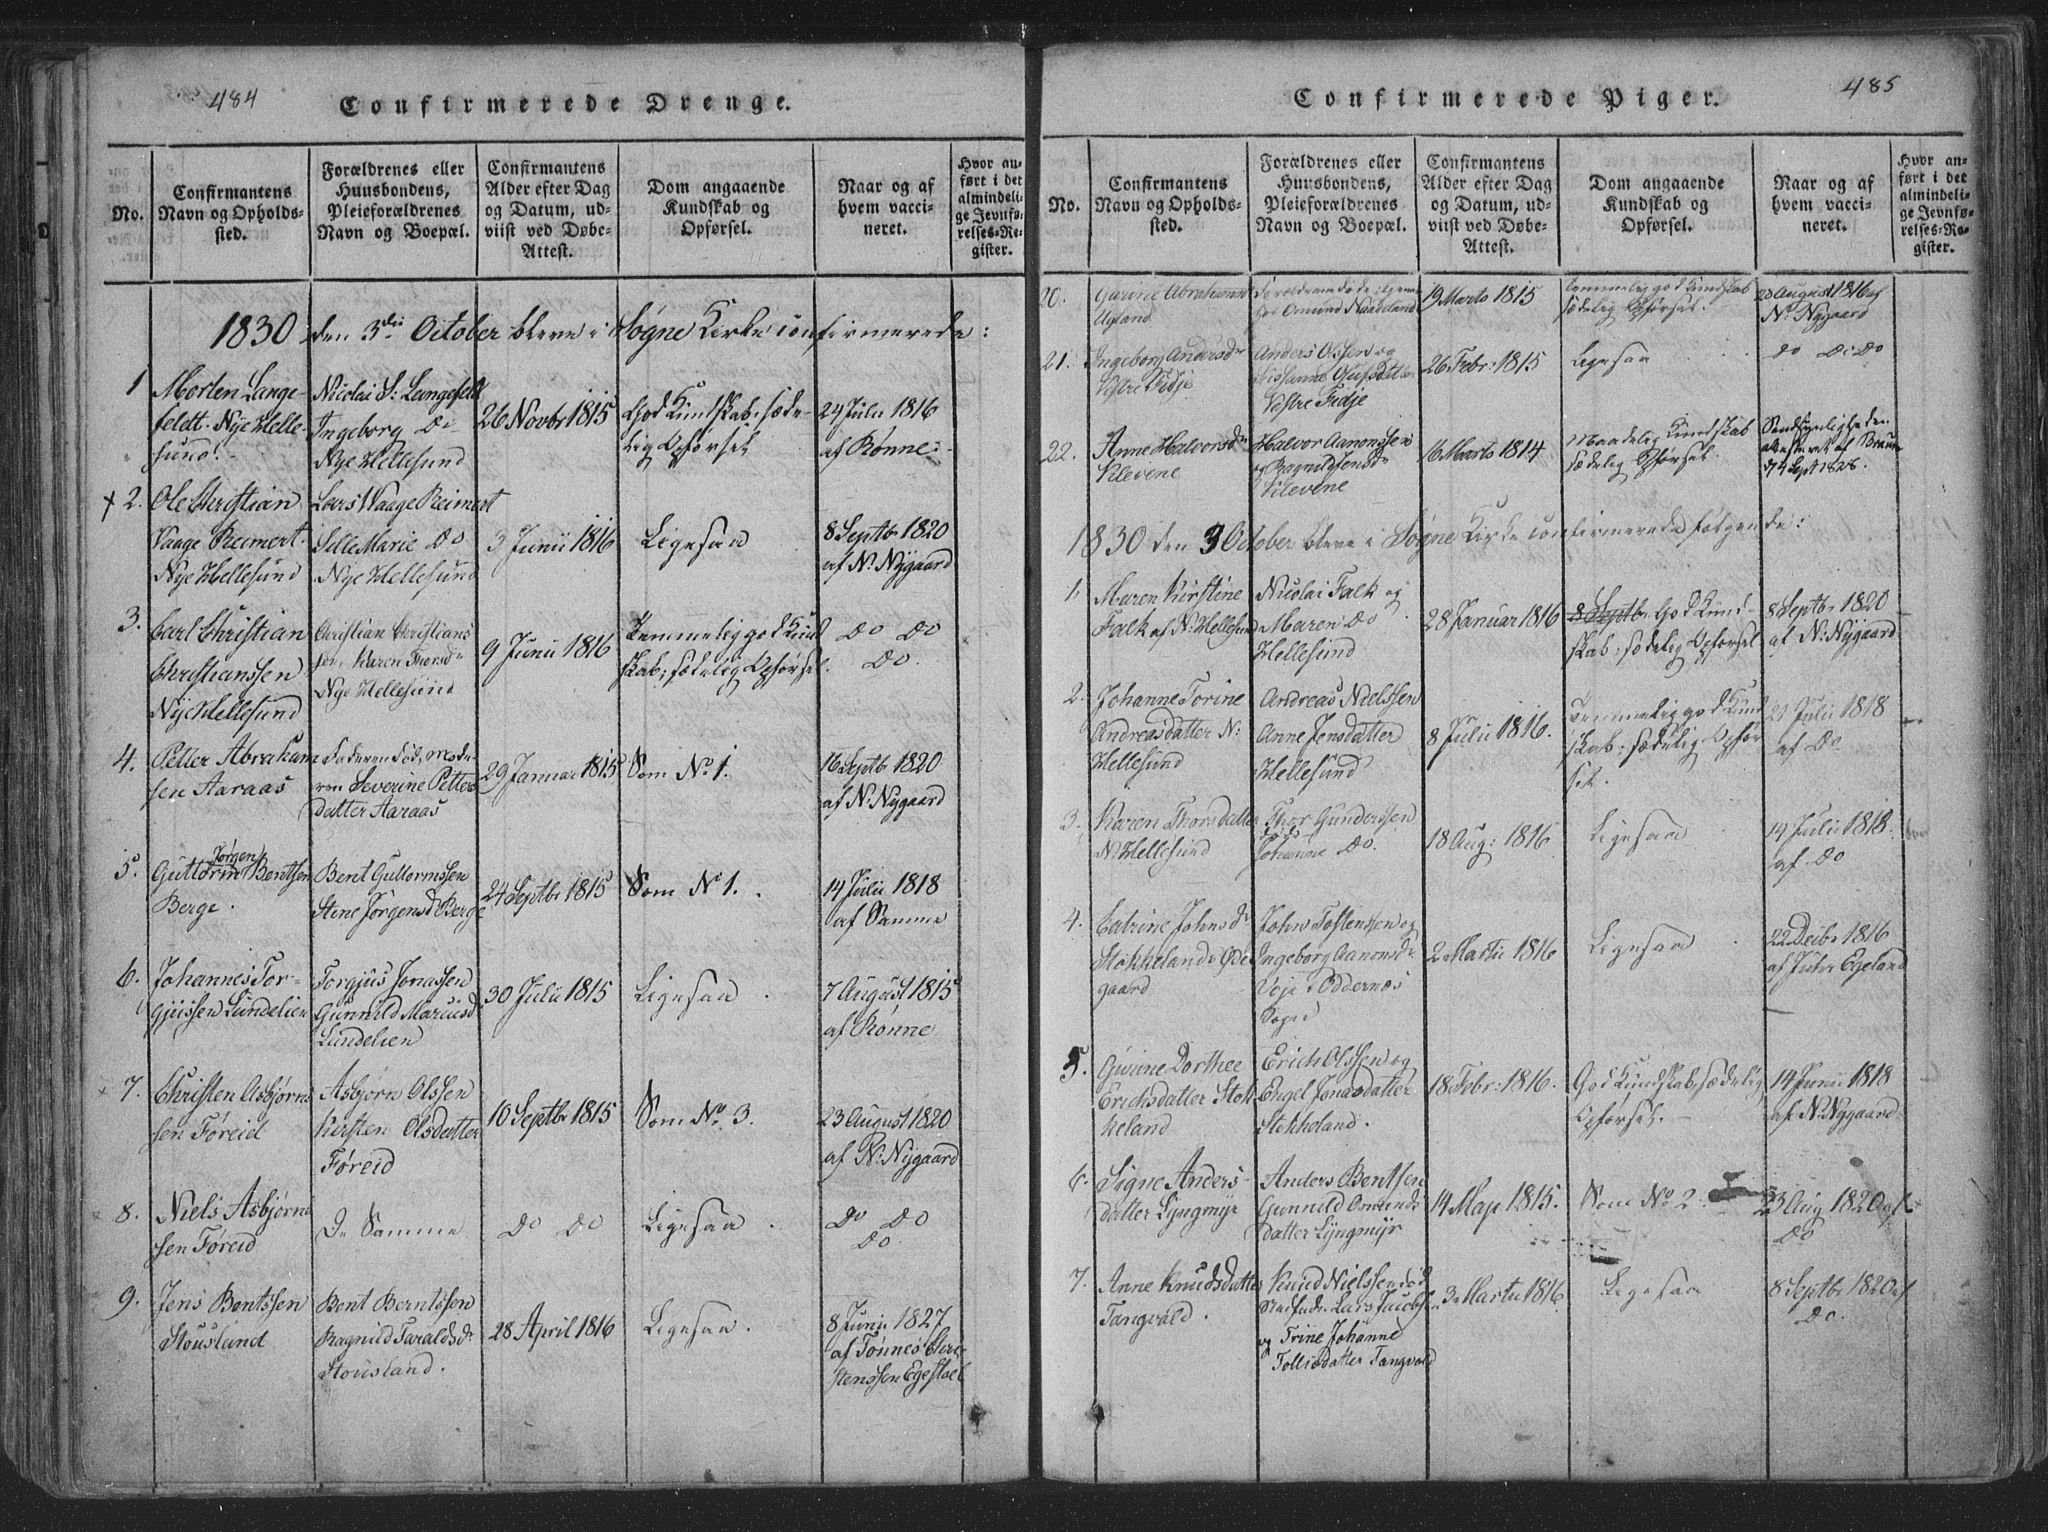 484
Confirmerede Drenge.
No.
Confirmantens
Navn og Opholds-
sted.
Forældrenes eller
Huusbondens,
Pleieforældrenes
Navn og Boepæl.
Confirmantens
Alder efter Dag
og Datum, ud-
viist ved Døbe-
Attest.
Dom angaaende
Kundskab og
Opførsel.
Naar og af
hvem vacci-
neret.
Hvor an-
ført i det
almindeli-
ge Jevnfø-
relses-Re-
gister.
1830 den 3die October bleve i Søgne Kirke confirmerede:
1
Morten Lange-
feldt. Nye Helle-
sund.
Nicolai S: Langefeldt
Ingeborg Do
Nye Hellesund
26 Novbr 1815
God Kundskab; sæde-
lig Opførsel
24 Julii 1816
af Rønne.
+ 2.
Ole Christian
Vaage Reimert.
Nye Hellesund
Lars Waage Reimert
Sille Marie Do
Nye Hellesund
3 Junii 1816
Ligesaa
8 Septbr 1820
af N. Nygaard
3.
Carl Christian
Christianssen
Nye Hellesund
Christian Christians
sen, Karen Thorsd.
Nye Hellesund
9 Junii 1816
Temmelig god Kund
skab; sædelig Opførsel.
Do Do
Do.
4.
Petter Abraham
sen Aaraas
Faderen død, Mode
ren Severine Petters
datter Aaraas
29 Januar 1815
Som No 1.
16 Septbr 1820
af N. Nygaard
5.
Jørgen
Guttorm Bentsen
Berge.
Bent Guttormssen
Stine Jørgensd Berge
24 Septbr 1815
Som No 1.
14 Julii 1818
af Samme
6.
Johannes Tor-
gjussen Lundelien
Torgjus Jonassen
Gunnild Marcusd.
Lundelien
30 Julii 1815
Ligesaa
7 August 1815
af Rønne
7.
Christen Asbjørn
sen Føreid
Asbjørn Olssen
Kirsten Olsdatter
Føreid
10 Septbr 1815
Som No. 3.
23 August 1820
af N. Nygaard
8.
Niels Asbjørn
sen Føreid
De Samme
Do Do
Ligesaa
Do Do
Do
9.
Jens Bentssen
Stousland
Bent Berntssen
Ragnild Taraldsd.
Stousland.
28 April 1816
Ligesaa
8 Junii 1827
af Tønnes Chri-
stenssen Egestøel
485
Confirmerede Piger.
No.
Confirmantens
Navn og Opholds-
sted.
Forældrenes eller
Huusbondens,
Pleieforældrenes
Navn og Boepæl.
Confirmantens
Alder efter Dag
og Datum, ud-
viist ved Døbe-
Attest.
Dom angaaende
Kundskab og
Opførsel.
Naar og af
hvem vacci-
neret.
Hvor an-
ført i det
almindeli-
ge Jevnfø-
relses-Re-
gister.
20.
Gurine Abrahamsd
Ugland
Forældrene døde;
hos Omund Naadeland
19 Marts 1815
Temmelig god Kundskab
sædelig Opførsel.
23 August 1816 af
N. Nygaard
21.
Ingeborg Andersd.
Vestre Fidje
Anders Olssen og
Susanne Olufsdatter
Vestre Fidje
26 Febr: 1815
Ligesaa
Do Do Do
22.
Anne Halvorsd.
Klevene
Halvor Aanonssen
og Ragnild Jensd.
Klevene
16 Marts 1814
Maadelig Kundskab
sædelig Opførsel.
Sandsynligheden
attesteret af
d 7 Sept 1828.
1830 den 3 October bleve i Søgne Kirke confirmerede følgende:
1.
Maren Kirstine
Falk af N. Hellesund
Nicolai Falk og
Maren Do.
Hellesund
28 Januar 1816
8 Septbr God Kund-
skab; sædelig Opførsel
8 Septbr 1820
af N. Nygaard
2.
Johanne Torine
Andreasdatter N:
Hellesund
Andreas Nielssen
Anne Jensdatter
Hellesund
8 Julii 1816.
Temmelig god Kund
skab; sædelig Opfør
sel.
21 Julii 1818
af Do
3.
Karen Thorsdatter
N. Hellesund
Thor Gunderssen
død
Johanne Do.
18 Aug: 1816
Ligesaa
14 Julii 1818.
af Do
4.
Catrine Johnsd.
Stokkeland Øde
gaard
John Tostenssen og
Ingeborg Aanonsd.
Veje i Oddernes
Sogn
2 Martii 1816
Ligesaa
22 Decbr 1816
af Peder Egeland
5.
Gurine Dorthee
Erichsdatter Stok
keland
Erich Olssen og
Engel Jonasdatter
Stokkeland.
18 Febr: 1816.
God Kundskab; sædelig
Opførsel.
14 Junii 1818
af N. Nygaard
6.
Signe Anders-
datter Lyngmyr
Anders Bentsen
Gunnild Omunds
datter Lyngmyr
14 Maji 1815.
Som No 2.
23 Aug 1820 af
Do
7.
Anne Knudsdatter
Tangvald.
Knud Nielssen død
Stedfader Lars Jacobsen
og Trine Johanne
Tollisdatter Tangvald
3 Martii 1816
Ligesaa
8 Septbr 1820 af
Do.